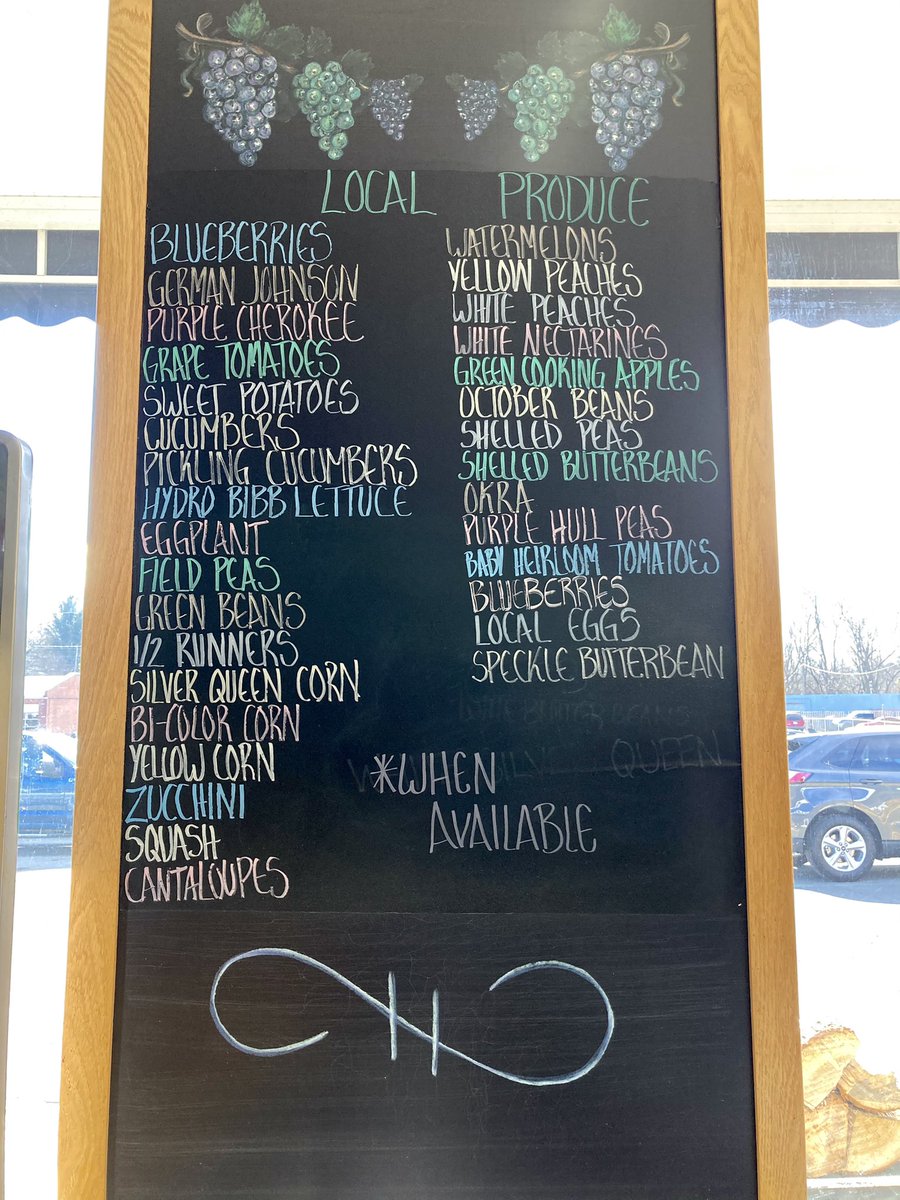 LOCAL PRODUCE
BLUEBERRIES
GERMAN JOHNSON
PURPLE CHEROKEE
GRAPE TOMATOES
SWEET POTATOES
CUCUMBERS
PICKLING CUCUMBERS
HYDRO BIBB LETTUCE
EGGPLANT
FIELD PEAS
GREEN BEANS
1/2 RUNNERS
SILVER QUEEN CORN
BI-COLOR CORN
YELLOW CORN
ZUCCHINI
SQUASH
CANTALOUPES
WATERMELONS
YELLOW PEACHES
WHITE PEACHES
WHITE NECTARINES
GREEN COOKING APPLES
OCTOBER BEANS
SHELLED PEAS
SHELLED BUTTERBEANS
OKRA
PURPLE HULL PEAS
BABY HEIRLOOM TOMATOES
BLUEBERRIES
LOCAL EGGS
SPECKLE BUTTERBEAN
BUTTER BEANS
SILVER QUEEN
*WHEN
AVAILABLE
H